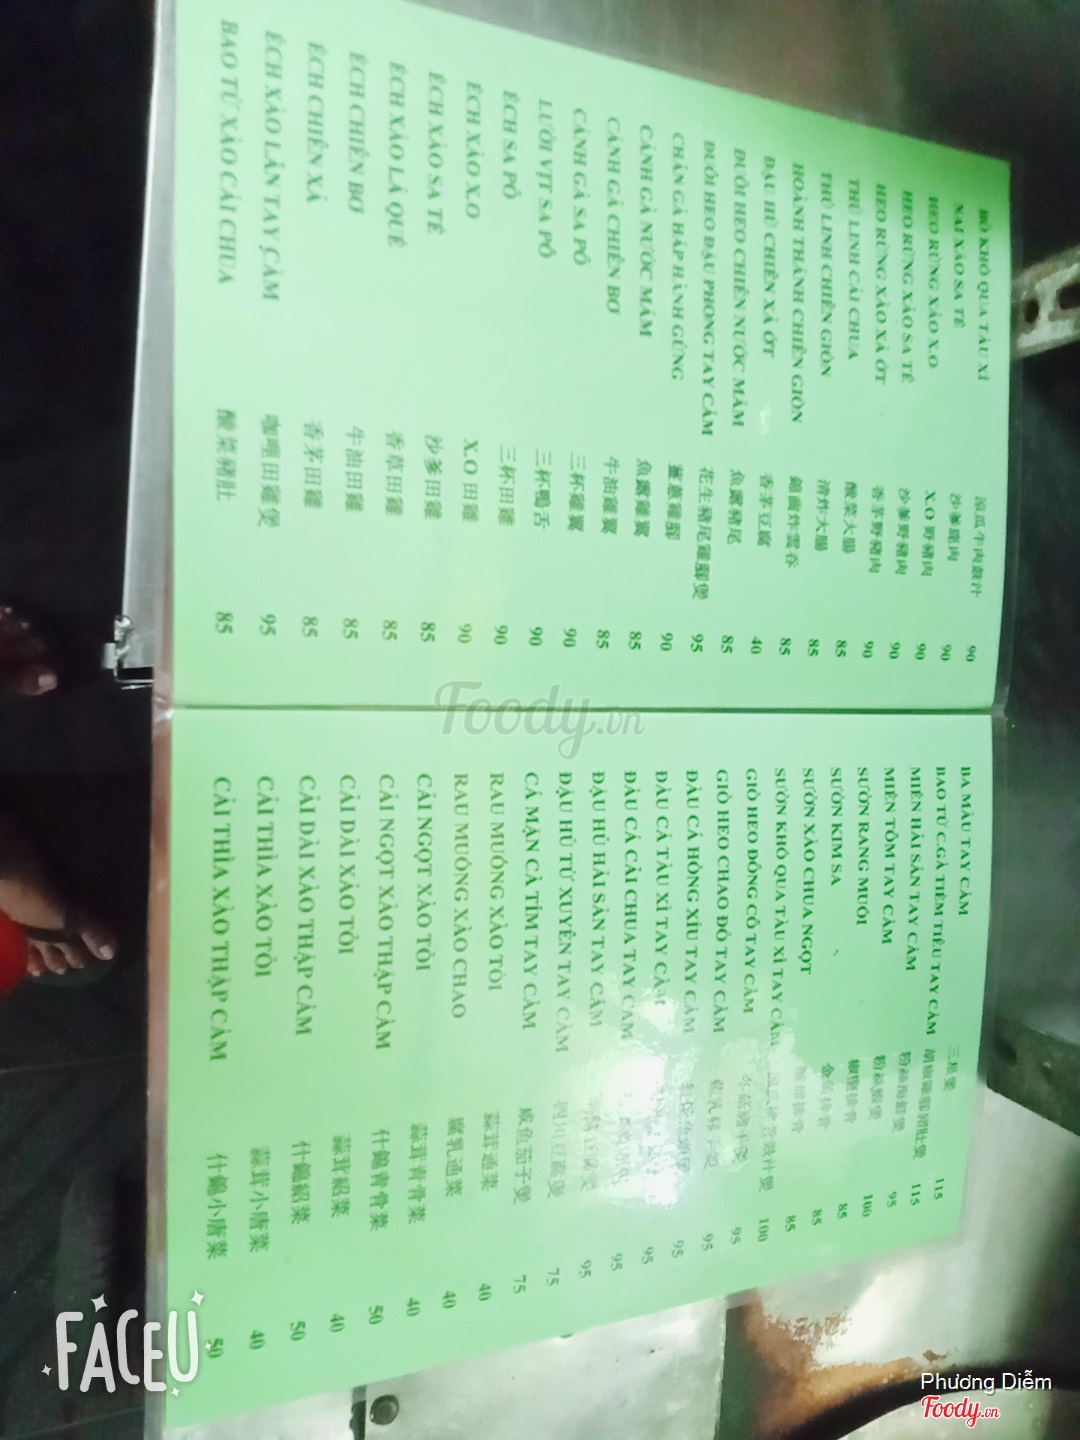 BÒ KHỔ QUA TÀU XÌ 涼瓜牛肉豉汁 90
NAI XÀO SA TẾ 沙爹鹿肉 90
HEO RỪNG XÀO X.O X.O 野豬肉 90
HEO RỪNG XÀO SA TẾ 沙爹野豬肉 90
HEO RỪNG XÀO XẢ ỚT 香茅野豬肉 90
THỦ LINH CẢI CHUA 酸菜大腸 85
THỦ LINH CHIÊN GIÒN 清炸大腸 85
HOÀNH THÁNH CHIÊN GIÒN 錦鹵炸雲吞 85
ĐẬU HỦ CHIÊN XẢ ỚT 香茅豆腐 40
ĐUÔI HEO CHIÊN NƯỚC MẮM 魚露豬尾 85
ĐUÔI HEO ĐẬU PHONG TAY CẦM 花生豬尾雞腳煲 95
CHÂN GÀ HẤP HÀNH GỪNG 薑蔥雞腳 90
CÁNH GÀ NƯỚC MẮM 魚露雞翼 85
CÁNH GÀ CHIÊN BƠ 牛油雞翼 85
CÁNH GÀ SA PÔ 三杯雞翼 90
LƯỠI VỊT SA PÔ 三杯鴨舌 90
ẾCH SA PÔ 三杯田雞 90
ẾCH XÀO X.O X.O 田雞 90
ẾCH XÀO SA TẾ 沙爹田雞 85
ẾCH XÀO LÁ QUẾ 香草田雞 85
ẾCH CHIÊN BƠ 牛油田雞 85
ẾCH CHIÊN XẢ 香茅田雞 85
ẾCH XÀO LĂN TAY CẦM 咖喱田雞煲 95
BAO TỬ XÀO CẢI CHUA 酸菜豬肚 85
BA MÀU TAY CẦM 三煲
BAO TỬ C.GÀ TIỀM TIÊU TAY CẦM 胡椒雞腳豬肚煲 115
MIẾN HẢI SẢN TAY CẦM 粉絲海鮮煲 115
MIẾN TÔM TAY CẦM 粉絲蝦煲 95
SƯỜN RANG MUỐI 椒鹽排骨 100
SƯỜN KIM SA 金排骨 85
SƯỜN XÀO CHUA NGỌT 排骨 85
SƯỜN KHỔ QUA TÀU XÌ TAY CẦM 涼瓜排骨豉汁煲 85
GIÒ HEO ĐÔNG CÔ TAY CẦM 冬菇豬手煲 100
GIÒ HEO CHAO ĐỎ TAY CẦM 95
ĐẦU CÁ HỒNG XÍU TAY CẦM 95
ĐẦU CÁ TÀU XÌ TAY CẦM 95
ĐẦU CÁ CẢI CHUA TAY CẦM 95
ĐẬU HỦ HẢI SẢN TAY CẦM 95
ĐẬU HỦ TỨ XUYÊN TAY CẦM 四川豆腐煲 95
CÁ MẶN CÀ TÍM TAY CẦM 咸魚茄子煲 75
RAU MUỐNG XÀO TỎI 蒜茸通菜 75
RAU MUỐNG XÀO CHAO 腐乳通菜 40
CẢI NGỌT XÀO TỎI 蒜茸青骨菜 40
CẢI NGỌT XÀO THẬP CẨM 什錦青骨菜 40
CẢI DÀI XÀO TỎI 蒜茸紹菜 50
CẢI DÀI XÀO THẬP CẨM 什錦紹菜 40
CẢI THÌA XÀO TỎI 蒜茸小唐菜 50
CẢI THÌA XÀO THẬP CẨM 什錦小唐菜 40
50
Foody.vn
FACEU
Phương Diễm
Foody.vn